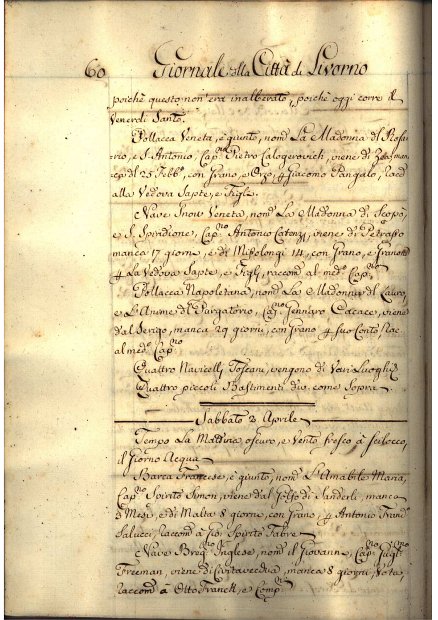 60 Giornale alla Città di Livorno
poiché questo non era inalberato, poiché oggi corre il
Venerdì Santo.
Pollacca Veneta, è giunto, nomᵃ La Madonna dl Rosa-
rio, e S. Antonio, Capⁿᵒ Pietro Calogerovich, viene di
dl 25 Febbº, con Grano, e Orzo, Giacomo Pangalo, racᵈ
alla Vedova Sapte, e Figli.
Nave Snow Veneta, nomᵃ La Madonna di Scopò,
e S. Spiridione, Capⁿᵒ Antonio, viene di Petrasso
manca 17 giorni, e di Missolongi 14, con Grano, e Granone
La Vedova Sapte, e Figlj, raccomᵃ al medº Capⁿᵒ
Pollacca Napoletana, nomᵃ La Madonna dl Lauro,
e L'Anime dl Purgatorio, Capⁿᵒ Gennaro Cacace, viene
dal Serigo, manca 29 giorni, con Grano suo Conto, Rac.
al medº Capⁿᵒ
Quattro Navicellj Toscani, vengono di Varj Luoghj
Quattro piccoli Bastimenti div. come Sopra
Sabbato 2 Aprile
Tempo La Mattina oscuro, e Vento fresco a Scilocco,
il Giorno Acqua
Barca Francese, è giunto, nomᵃ L'Amabile Maria,
Capⁿᵒ Spirito Simon, viene dal Golfo di Sanderli, manca
3 Mesi, e di Malta 8 giorni, con Grano, Antonio Franᶜᵒ
Salucci, raccomᵃ à Gio. Spirito Fabre
Nave Breg. Inglese, nomᵃ il Giovanni, Capⁿᵒ Guglᵐᵒ
Freeman, viene di Civitavecchia, manca 8 giorni, Vota,
raccomᵃ à Otto Franck, e Compⁿⁱ